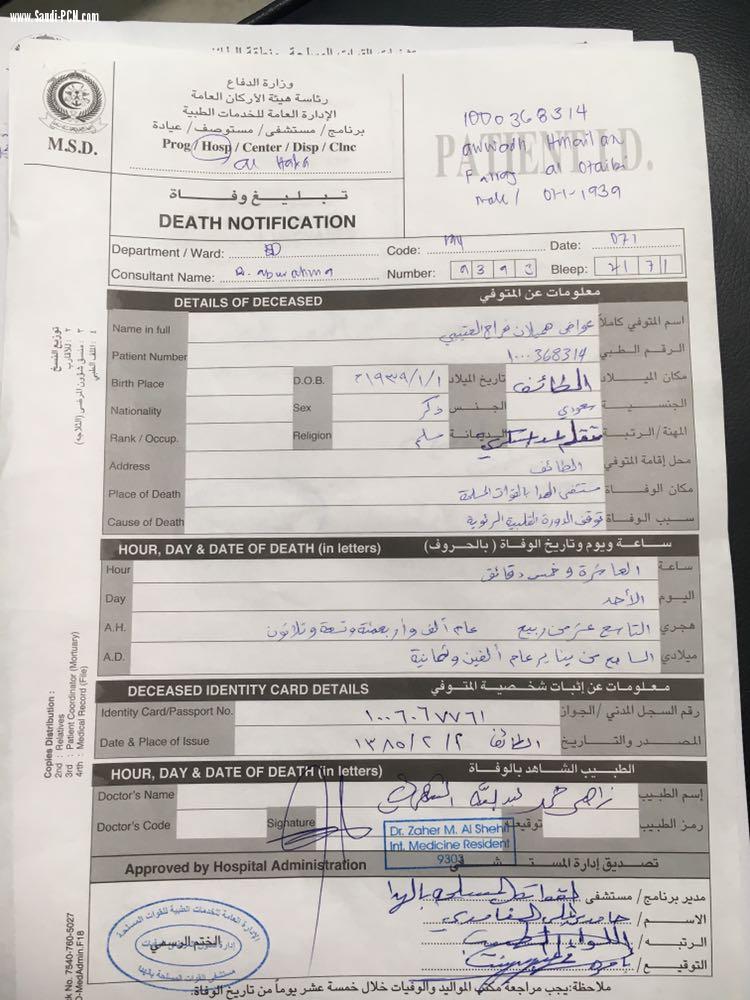 www.Saudi-PCN.com
M.S.D.
وزارة الدفاع
رئاسة هيئة الأركان العامة
الإدارة العامة للخدمات الطبية
برنامج / مستشفى / مستوصف / عيادة
Prog / Hosp / Center / Disp / Clnc
Al Hada
PATIENT I.D.
1000368314
awwadh Hmailan
Farrag al Otaibi
male / 01-1-1939
تبليغ وفاة
DEATH NOTIFICATION
Department / Ward: Code: Date:
Consultant Name: Number: 0393 Bleep: 7171
DETAILS OF DECEASED معلومات عن المتوفي
Name in full عواض هميلان فراج العتيبي اسم المتوفي كاملاً
Patient Number ١٠٠٠٣٦٨٣١٤ الرقم الطبي
Birth Place D.O.B. ١٩٣٩/١/١م تاريخ الميلاد الطائف مكان الميلاد
Nationality Sex ذكر الجنس سعودي الجنسية
Rank / Occup. Religion مسلم الديانة متقاعد عسكري المهنة/الرتبة
Address الطائف محل إقامة المتوفي
Place of Death مستشفى الهدا بالقوات المسلحة مكان الوفاة
Cause of Death توقف الدورة القلبية الرئوية سبب الوفاة
HOUR, DAY & DATE OF DEATH (in letters) ساعة ويوم وتاريخ الوفاة (بالحروف)
Hour العاشرة وخمس دقائق ساعة
Day الأحد اليوم
A.H. التاسع عشر من ربيع عام ألف وأربعمئة وتسعة وثلاثون هجري
A.D. السابع من يناير عام ألفين وثمانية ميلادي
DECEASED IDENTITY CARD DETAILS معلومات عن إثبات شخصية المتوفي
Identity Card/Passport No. ١٠٠٦٠٦٧٧٦١ رقم السجل المدني /الجواز
Date & Place of Issue ١٣٨٥/٢/٢ الطائف المصدر والتاريخ
HOUR, DAY & DATE OF DEATH (in letters) الطبيب الشاهد بالوفاة
Doctor's Name إسم الطبيب
Doctor's Code Signature توقيعه رمز الطبيب
Dr. Zaher M. Al Shehri
Int. Medicine Resident
9303
Approved by Hospital Administration تصديق إدارة المستشفى
مدير برنامج / مستشفى القوات المسلحة بالهدا
الاسم / الغامدي
الرتبه / اللواء الطبيب
التوقيع /
الإدارة العامة للخدمات الطبية للقوات المسلحة
الختم الرسمي
مستشفى القوات المسلحة بالهدا
ملاحظة: يجب مراجعة مكتب المواليد والوفيات خلال خمسة عشر يوماً من تاريخ الوفاة.
توزيع النسخ
٢ : للأقارب
٣ : منسق شؤون المرضى (الثلاجة)
٤ : الملف الطبي
Copies Distribution :
2nd : Relatives
3rd : Patient Coordinator (Mortuary)
4rth : Medical Record (File)
k No. 7540-760-5027
D-MedAdmin.F18